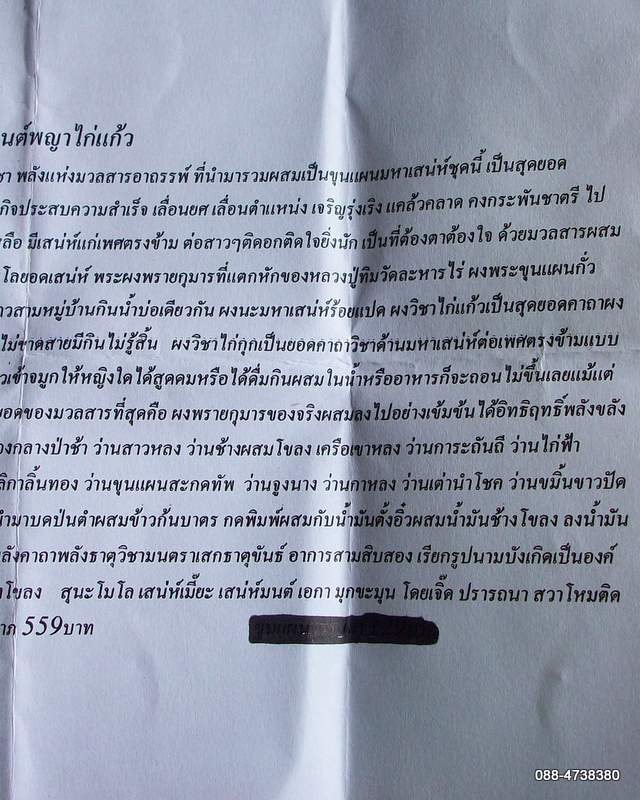 นต์พญาไก่แก้ว
ชา พลังแห่งมวลสารอาถรรพ์ ที่นำมารวมผสมเป็นขุนแผนมหาเสน่ห์ชุดนี้ เป็นสุดยอด
กิจประสบความสำเร็จ เลื่อนยศ เลื่อนตำแหน่ง เจริญรุ่งเริง แคล้วคลาด คงกระพันชาตรี ไป
หลือ มีเสน่ห์แก่เพศตรงข้าม ต่อสาวๆติดอกติดใจยิ่งนัก เป็นที่ต้องตาต้องใจ ด้วยมวลสารผสม
โลยอดเสน่ห์ พระผงพรายกุมารที่แตกหักของหลวงปู่ทิมวัดละหารไร่ ผงพระขุนแผนกั่ว
าวสามหมู่บ้านกินน้ำบ่อเดียวกัน ผงนะมหาเสน่ห์ร้อยแปด ผงวิชาไก่แก้วเป็นสุดยอดคาถาผง
ไม่ขาดสายมีกินไม่รู้สิ้น ผงวิชาไก่กุกเป็นยอดคาถาวิชาด้านมหาเสน่ห์ต่อเพศตรงข้ามแบบ
วเข้าจมูกให้หญิงใดได้สูดดมหรือได้ดื่มกินผสมในน้ำหรืออาหารก็จะถอนไม่ขึ้นเลยแม้แต่
ยอดของมวลสารที่สุดคือ ผงพรายกุมารของจริงผสมลงไปอย่างเข้มข้นได้อิทธิฤทธิ์พลังขลัง
องกลางป่าช้า ว่านสาวหลง ว่านช้างผสมโขลง เครือเขาหลง ว่านการะถันถี ว่านไก่ฟ้า
ลิกาลิ้นทอง ว่านขุนแผนสะกดทัพ ว่านจูงนาง ว่านกาหลง ว่านเต่านำโชค ว่านขมิ้นขาวปัด
นำมาบดป่นตำผสมข้าวก้นบาตร กดพิมพ์ผสมกับน้ำมันตั้งอิ๊วผสมน้ำมันช้างโขลง ลงน้ำมัน
ลังคาถาพลังธาตุวิชามนตราเสกธาตุขันธ์ อาการสามสิบสอง เรียกรูปนามบังเกิดเป็นองค์
โขลง สุนะโมโล เสน่ห์เมี๊ยะ เสน่ห์มนต์ เอกา มุกขะมุน โดยเจี๊ด ปรารถนา สวาโหมติด
าภ 559บาท
088-4738380